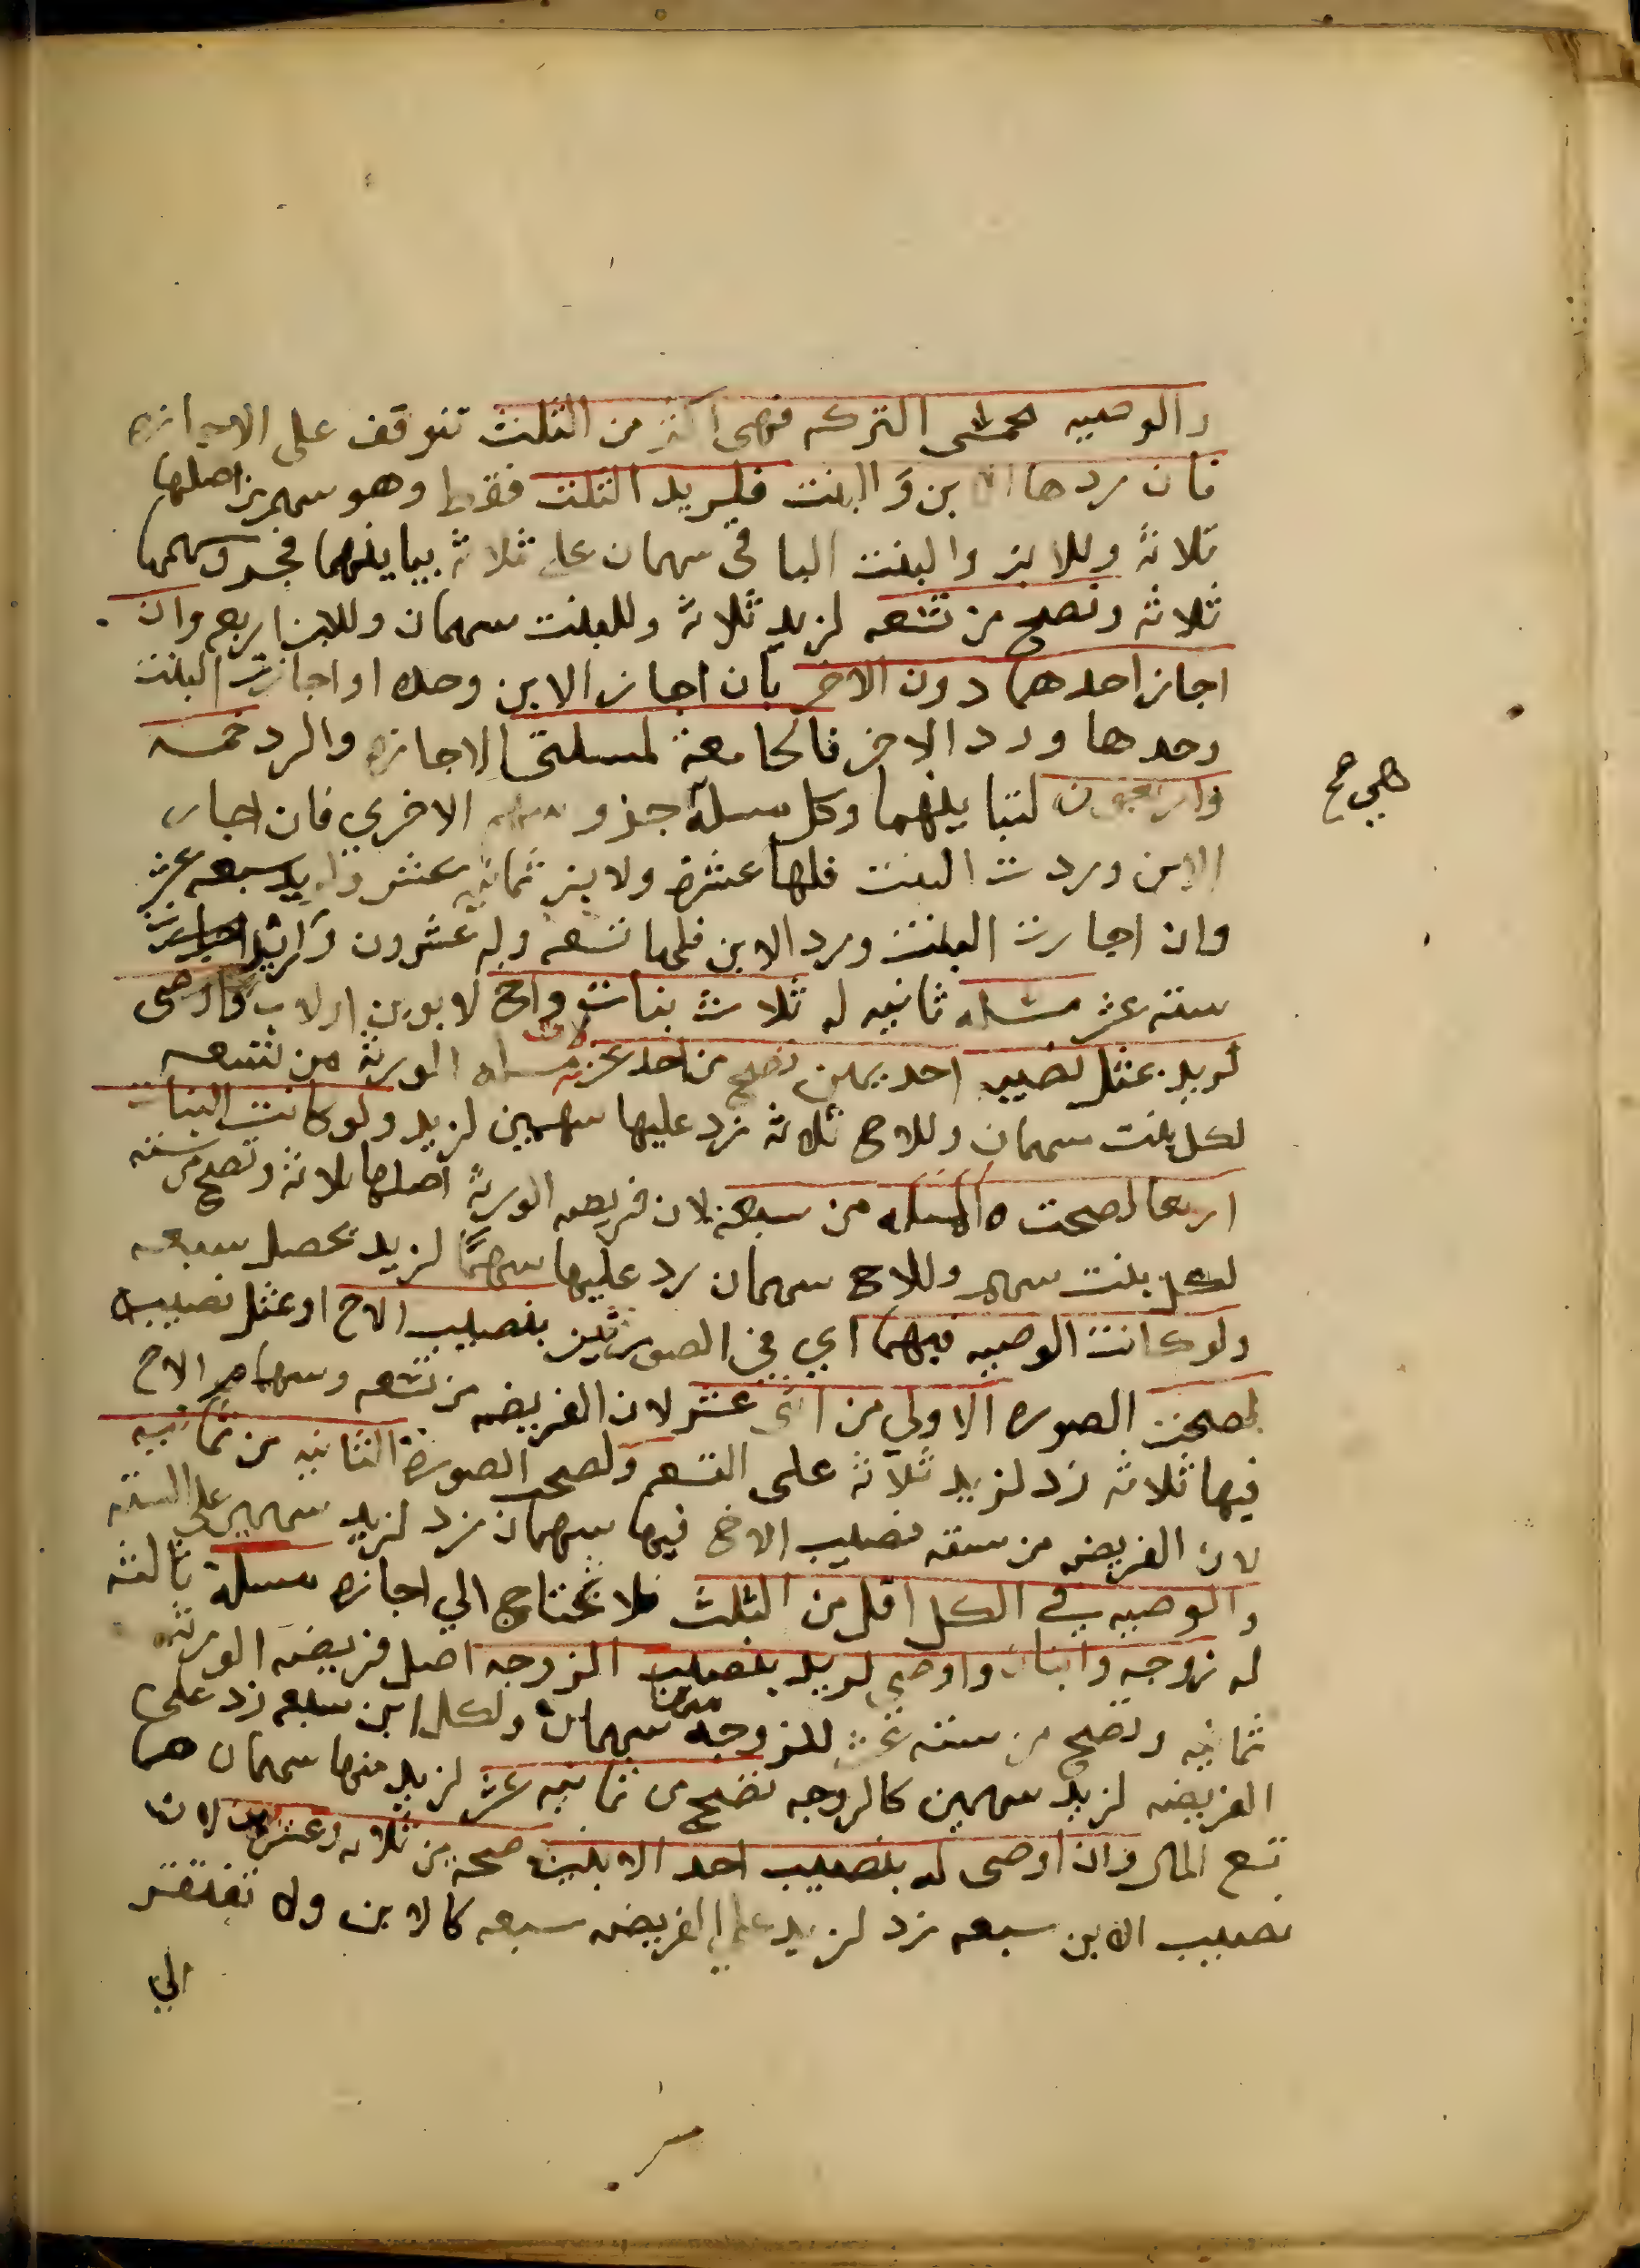 والوصيه بخمسي التركه فهي اكثر من الثلث تتوقف على الاجازه
فان ردها الابن وَالبنت فلزيد الثلث فقط وهو سهم من اصلها
ثلاثة وللابن والبنت الباقي سهمان على ثلاثة يباينهما فجزؤ سهمها
ثلاثة وتصح من تسعه لزيد ثلاثة وللبنت سهمان وللابن اربع وان
اجاز احدهما دون الاخر بان اجاز الابن وحده او اجازت البنت
وحدها ورد الاخر فالجامعة لمسلتي الاجازه والرد خمسه
واربعون لتباينهما وكل مسلة جزو سهم الاخري فان اجاز
الابن وردت البنت فلها عشرة ولابن ثمانيه عشر ولزيد سبعه عشر
وان اجازت البنت ورد الابن فلها تسعه وله عشرون ولزيد
سته عشر مسله ثانيه له ثلاث بنات واخ لابوين او لاب واوصى
لزيد بمثل نصيب احديهن تصح من احد عشر لان مسله الورثة من تسعه
لكل بنت سهمان وللاخ ثلاثه زد عليها سهمين لزيد ولو كانت البنات
اربعا لصحت المسله من سبعة لان فريضه الورثة اصلها ثلاثة وتصح من سته
لكل بنت سهم وللاخ سهمان زد عليها سهمًا لزيد تحصل سبعه
ولو كانت الوصيه فيهما اي في الصورتين بنصيب الاخ او بمثل نصيبه
لصحت الصوره الاولي من اثني عشر لان الفريضه من تسعه وسهام الاخ
فيها ثلاثه زد لزيد ثلاثة على التسعه ولصحت الصورة الثانيه من ثمانيه
لان الفريضه من سته نصيب الاخ فيها سهمان زد لزيد سهمين على السته
والوصيه في الكل اقل من الثلث فلا تحتاج الي اجازه مسلة ثالثه
له زوجه وابنان واوصي لزيد بنصيب الزوجه اصل فريضة الورثه
ثمانيه وتصح من سته عشر للزوجه منها سهمان ولكل ابن سبعه زد على
الفريضه لزيد سهمين كالزوجه تصح من ثمانيه عشر لزيد منها سهمان هما
تسع المال وان اوصى له بنصيب احد الابنين صحت من ثلاثه وعشرين لان
نصيب الابن سبعه زد لزيد على الفريضه سبعه كالابن ولا تفتقر
الي
هي صح